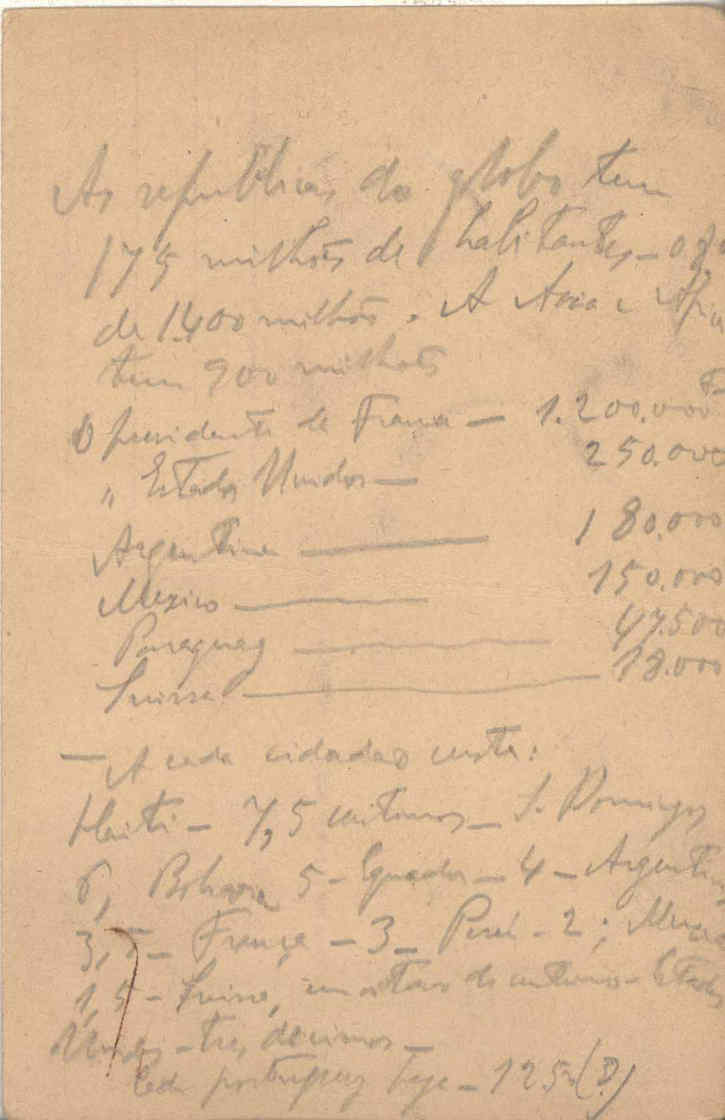 As republicas do globo tem
175 milhões de habitantes – o gl
de 1.400 milhões. A Asia e Afri
tem 900 milhões
O presidente de França — 1.200.000 F
" Estados Unidos — 250.000
Argentina — 180.000
Mexico — 150.000
Paraguay — 47.500
Suissa — 18.000
— A cada cidadão custa:
Haiti – 7,5 centimos – S. Domingos
6, Bolivia 5 – Equador – 4 – Argentin
3,5 – França – 3 – Perú – 2; Mexico
1,5 – Suissa, um oitavo de centimo – Estados
Unidos – tres decimos –
Cada portuguez – 125 (?)